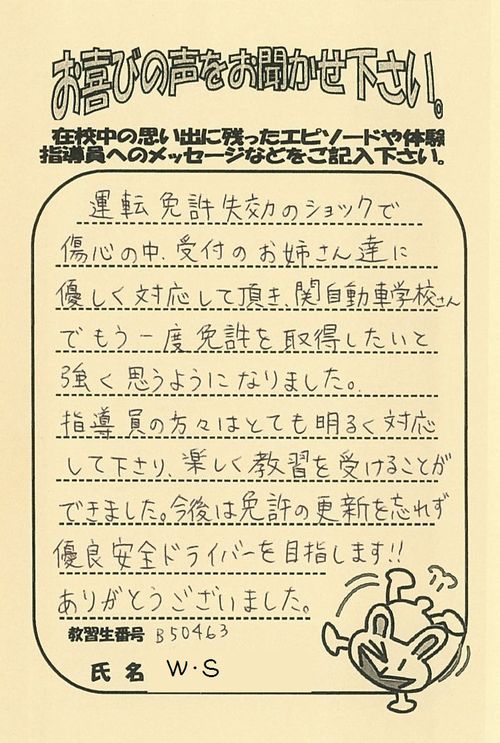 お喜びの声をお聞かせ下さい。
在校中の思い出に残ったエピソードや体験
指導員へのメッセージなどをご記入下さい。
運転免許失効のショックで
傷心の中、受付のお姉さん達に
優しく対応して頂き、関自動車学校さん
でもう一度免許を取得したいと
強く思うようになりました。
指導員の方々はとても明るく対応
して下さり、楽しく教習を受けることが
できました。今後は免許の更新を忘れず
優良安全ドライバーを目指します!!
ありがとうございました。
教習生番号 B50463
氏名 W・S